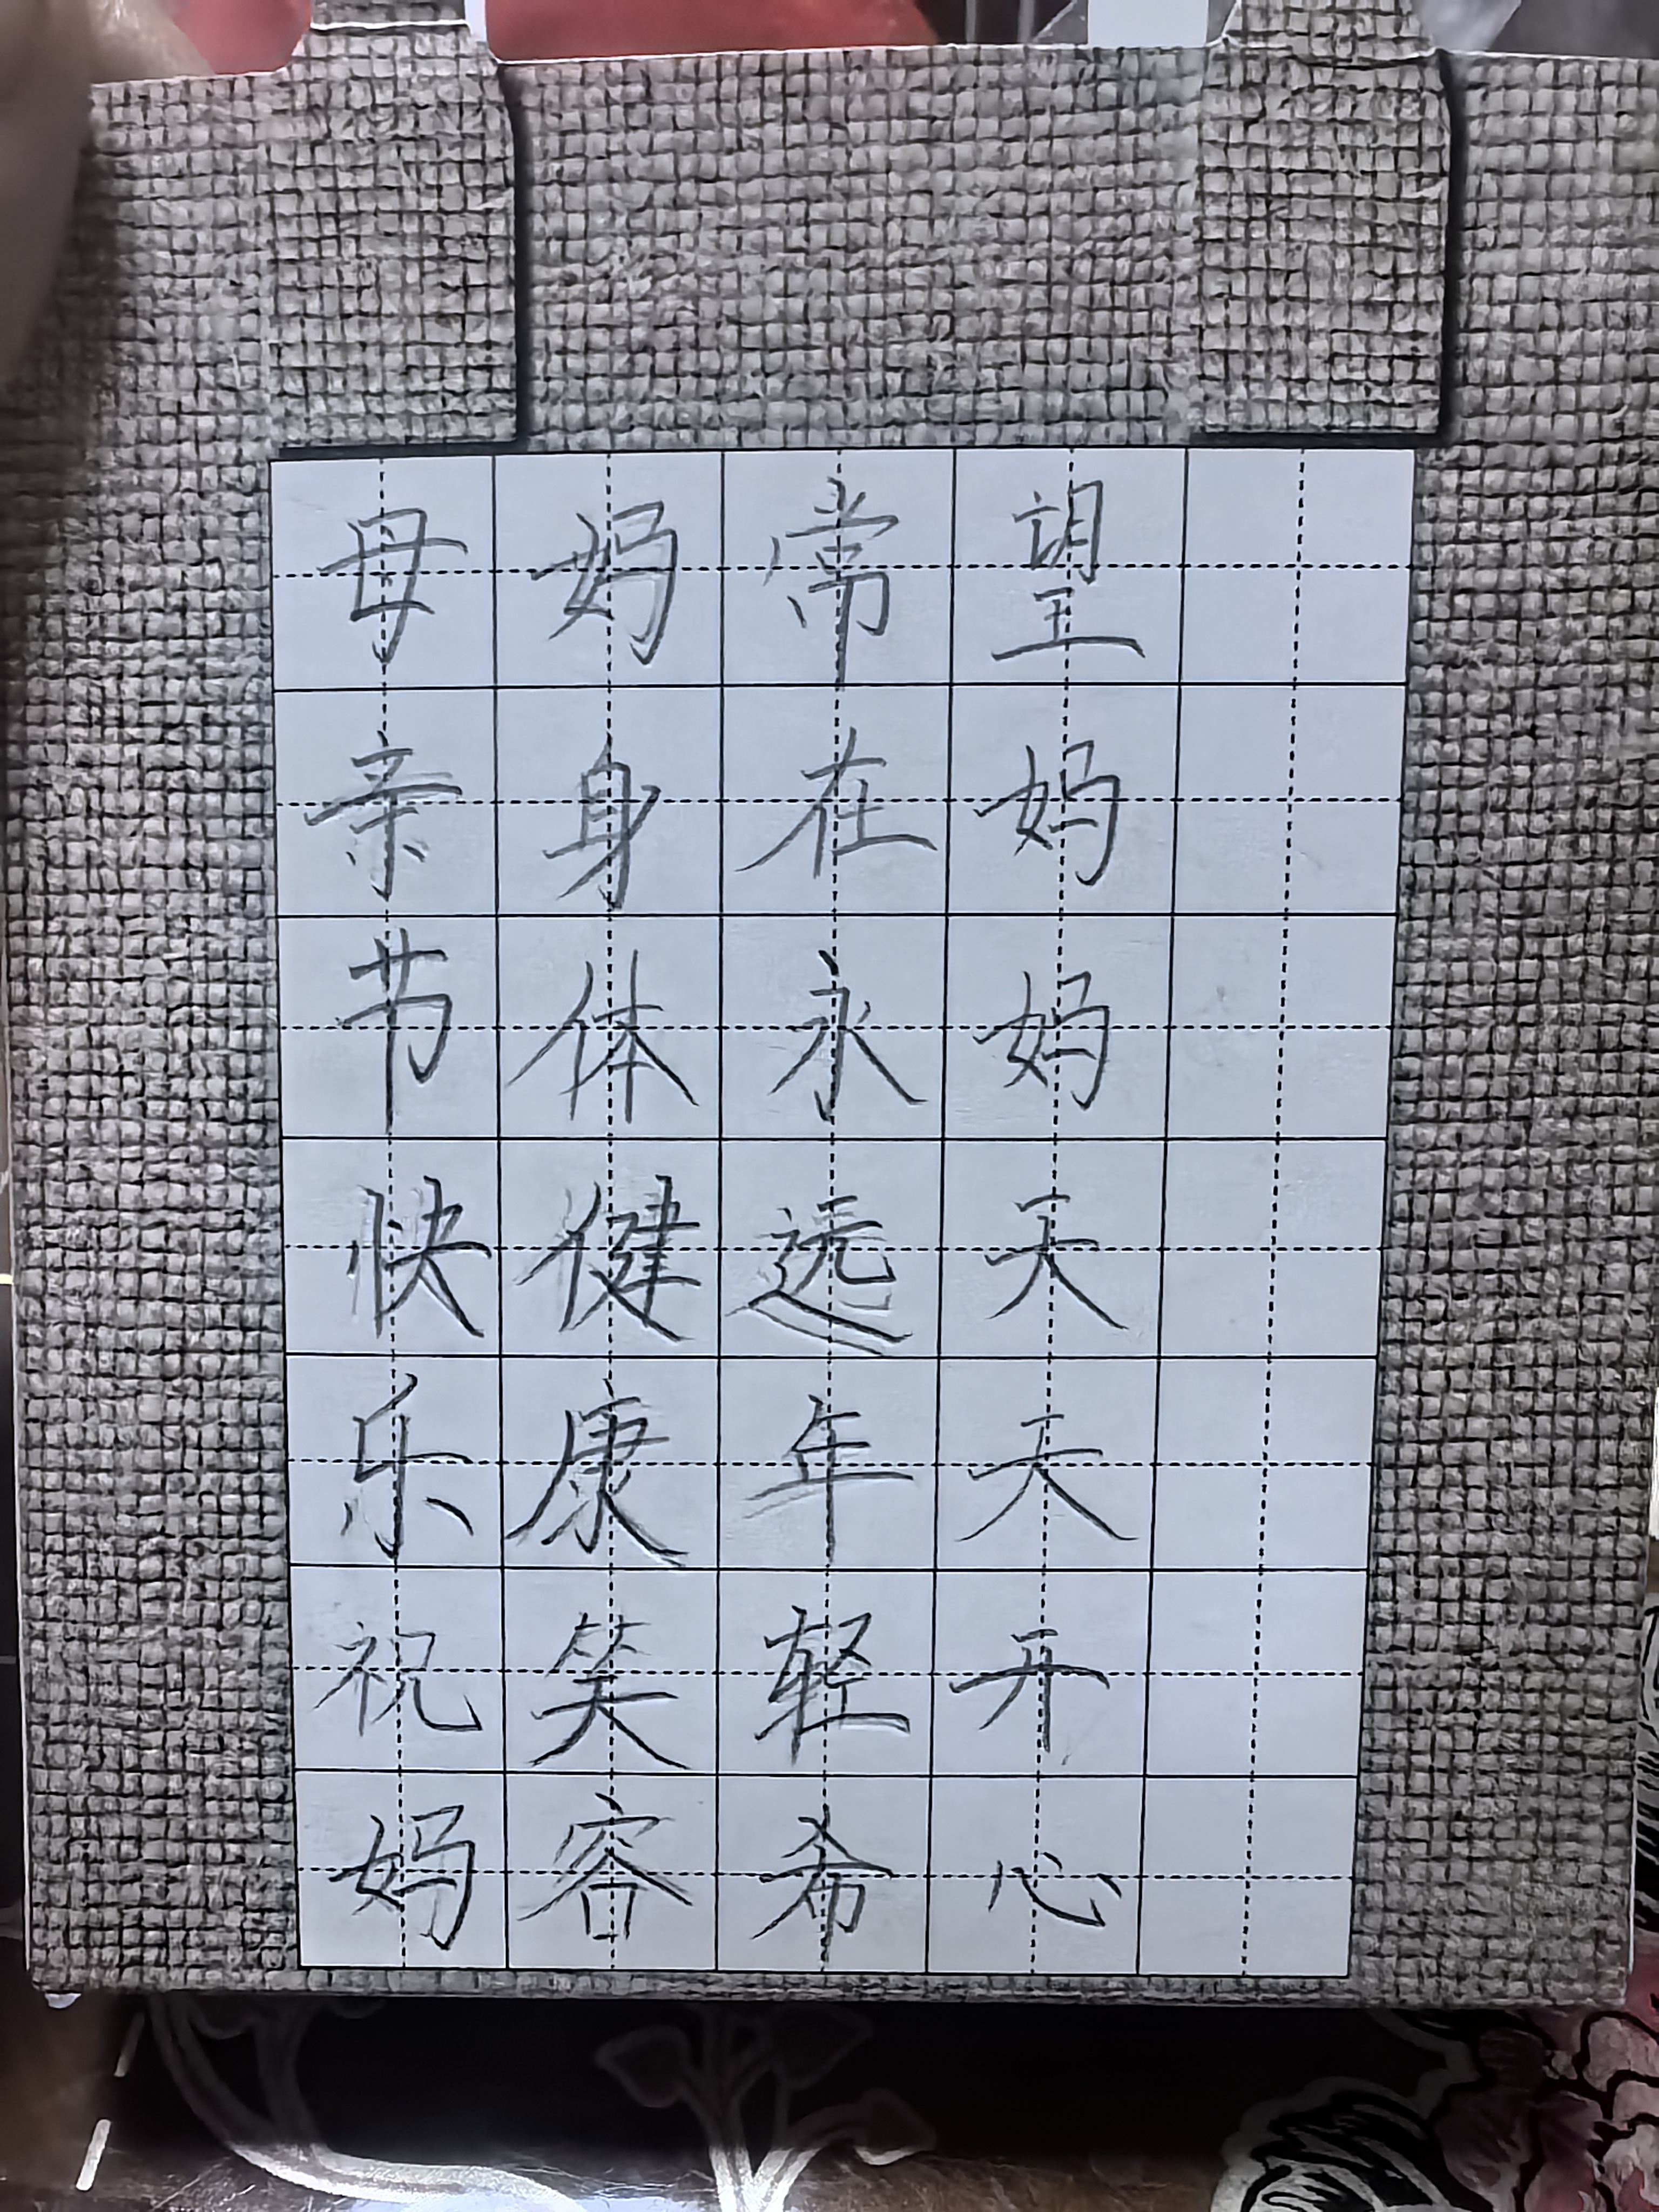 母亲节快乐祝妈
妈身体健康笑容
常在永远年轻希
望妈妈天天开心